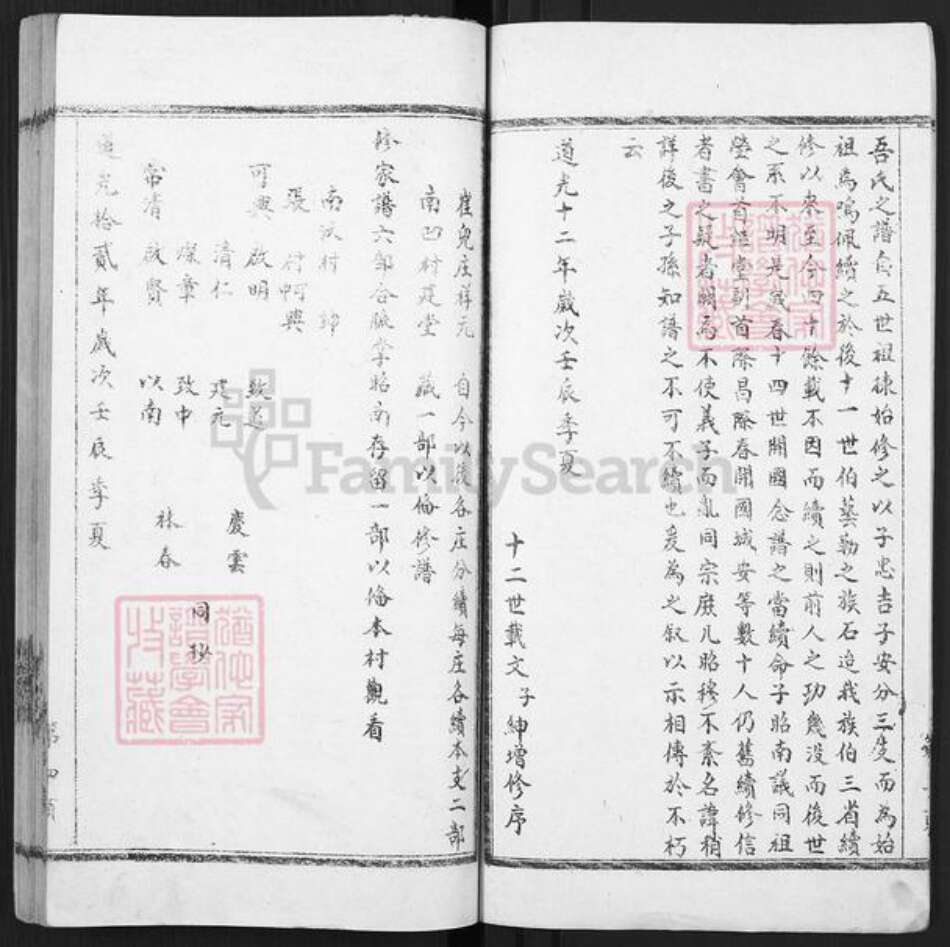 吾氏之譜自五世祖徠始修之以子忠吉子安分三支而為始
祖為鳴佩續之於後十一世伯藝勒之族石迨我族伯三省續
修以來至今四十餘載不因而續之則前人之功幾没而後世
之系不明是歲春十四世開國念譜之當續命子昭南議同祖
塋會首 堂訓首際昌際春開國城安等數十人仍舊續修信
者書之疑者闕焉不使義子而亂同宗庶凡昭穆不紊名諱稍
詳後之子孫知譜之不可不續也爰為之叙以示相傳於不朽
云
道光十二年歲次壬辰季夏
十二世載文子紳增修序
崔兒庄祥元 自今以後各庄分續每庄各續本支二部
南凹村建堂 藏一部以備修譜
修家譜六部合 掌昭南存留一部以備本村觀看
南 村
張 村 興
可興 啟明 致遠
清仁 建元 慶雲
際章 致中 同抄
常清 啟賢 以南 林春
道光拾貳年歲次壬辰季夏
第四頁
猶他家譜學會特藏
猶他家譜學會特藏
FamilySearch